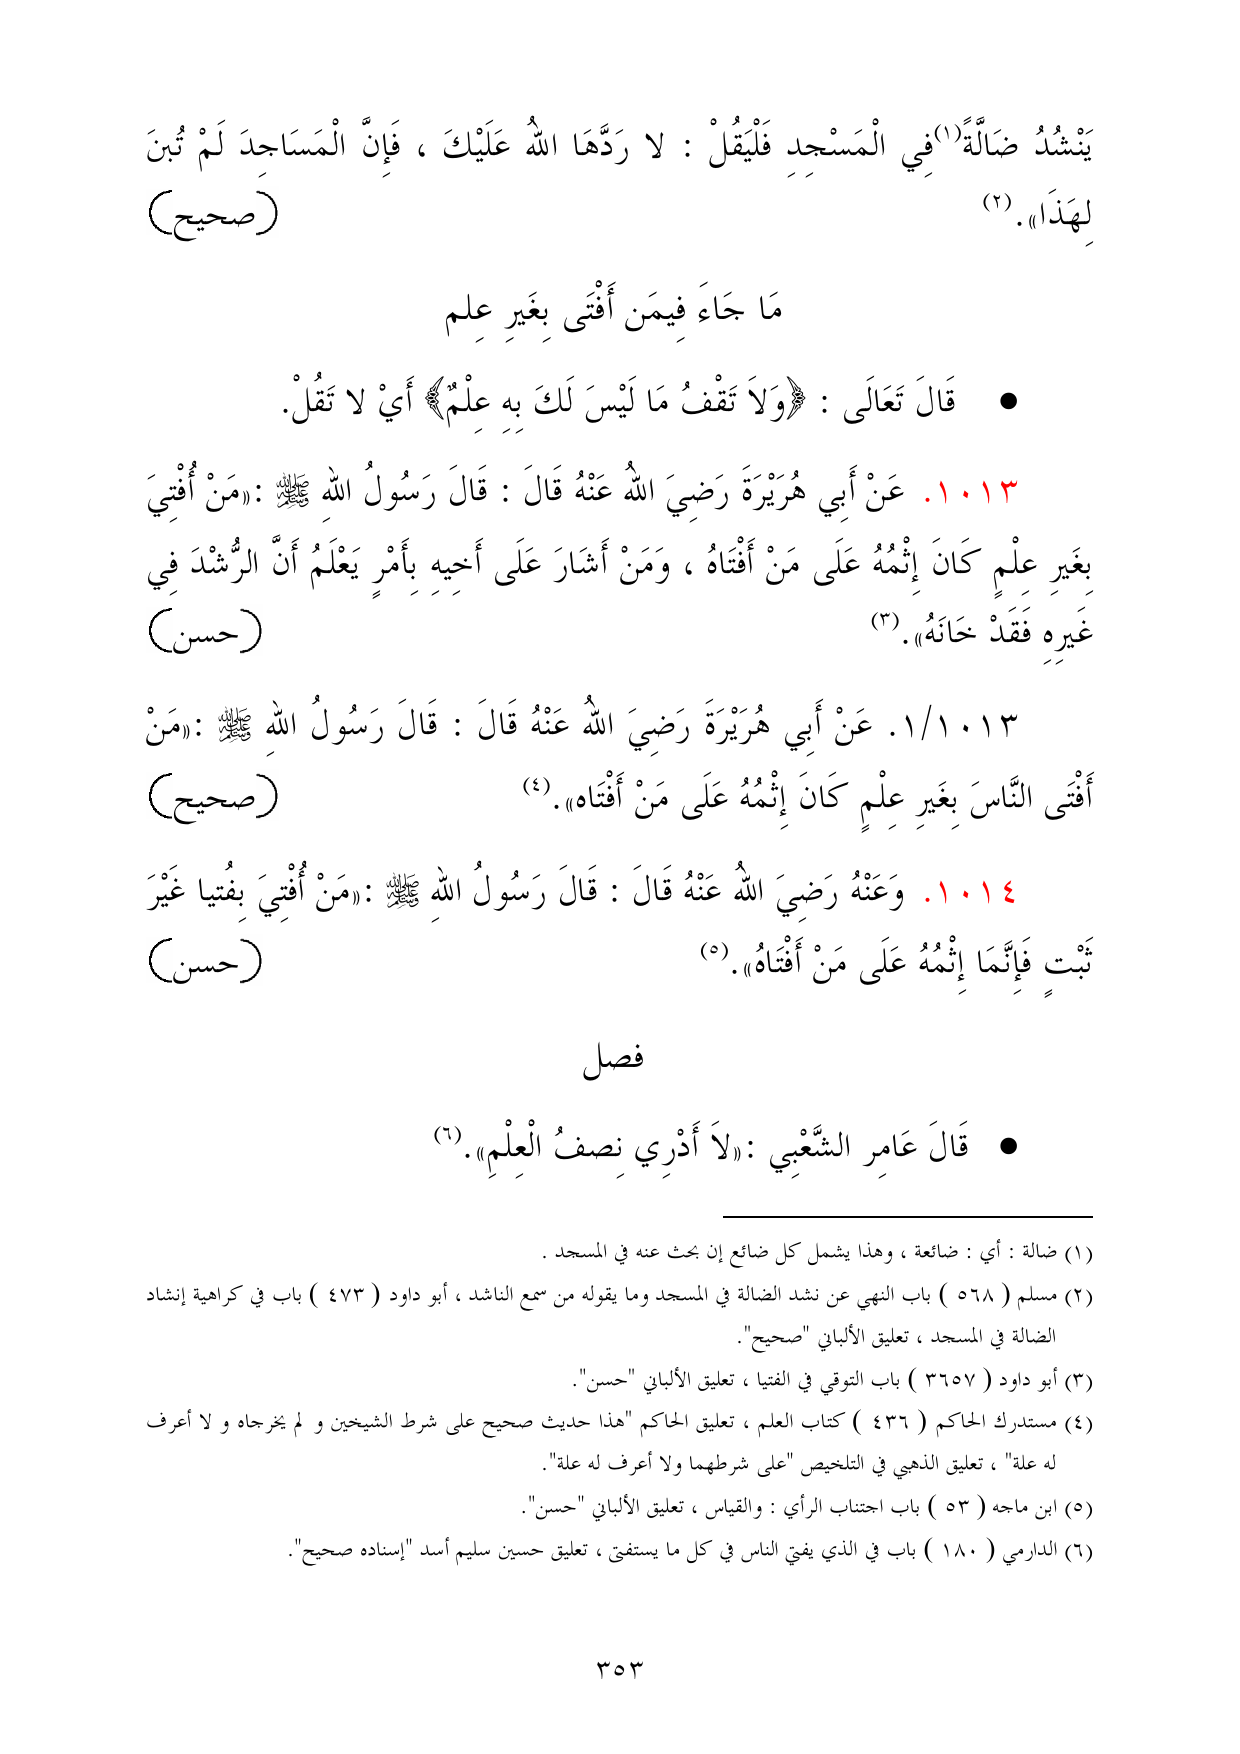 يَنْشُدُ ضَالَّةً(١)فِي الْمَسْجِدِ فَلْيَقُلْ : لا رَدَّهَا اللهُ عَلَيْكَ ، فَإِنَّ الْمَسَاجِدَ لَمْ تُبنَ
لِهَذَا». (٢) (صحيح)
مَا جَاءَ فِيمَن أَفْتَى بِغَيرِ عِلم
● قَالَ تَعَالَى : ﴿وَلاَ تَقْفُ مَا لَيْسَ لَكَ بِهِ عِلْمٌ﴾ أَيْ لا تَقُلْ.
١٠١٣. عَنْ أَبِي هُرَيْرَةَ رَضِيَ اللهُ عَنْهُ قَالَ : قَالَ رَسُولُ اللهِ ﷺ :«مَنْ أُفْتِيَ
بِغَيرِ عِلْمٍ كَانَ إِثْمُهُ عَلَى مَنْ أَفْتَاهُ ، وَمَنْ أَشَارَ عَلَى أَخِيهِ بِأَمْرٍ يَعْلَمُ أَنَّ الرُّشْدَ فِي
غَيرِهِ فَقَدْ خَانَهُ». (٣) (حسن)
١/١٠١٣. عَنْ أَبِي هُرَيْرَةَ رَضِيَ اللهُ عَنْهُ قَالَ : قَالَ رَسُولُ اللهِ ﷺ :«مَنْ
أَفْتَى النَّاسَ بِغَيرِ عِلْمٍ كَانَ إِثْمُهُ عَلَى مَنْ أَفْتَاه». (٤) (صحيح)
١٠١٤. وَعَنْهُ رَضِيَ اللهُ عَنْهُ قَالَ : قَالَ رَسُولُ اللهِ ﷺ :«مَنْ أُفْتِيَ بِفُتيا غَيْرَ
ثَبْتٍ فَإِنَّمَا إِثْمُهُ عَلَى مَنْ أَفْتَاهُ». (٥) (حسن)
فصل
● قَالَ عَامِر الشَّعْبِي :«لاَ أَدْرِي نِصفُ الْعِلْمِ». (٦)
(١) ضالة : أي : ضائعة ، وهذا يشمل كل ضائع إن بحث عنه في المسجد .
(٢) مسلم ( ٥٦٨ ) باب النهي عن نشد الضالة في المسجد وما يقوله من سمع الناشد ، أبو داود ( ٤٧٣ ) باب في كراهية إنشاد
الضالة في المسجد ، تعليق الألباني "صحيح".
(٣) أبو داود ( ٣٦٥٧ ) باب التوقي في الفتيا ، تعليق الألباني "حسن".
(٤) مستدرك الحاكم ( ٤٣٦ ) كتاب العلم ، تعليق الحاكم "هذا حديث صحيح على شرط الشيخين و لم يخرجاه و لا أعرف
له علة" ، تعليق الذهبي في التلخيص "على شرطهما ولا أعرف له علة".
(٥) ابن ماجه ( ٥٣ ) باب اجتناب الرأي : والقياس ، تعليق الألباني "حسن".
(٦) الدارمي ( ١٨٠ ) باب في الذي يفتي الناس في كل ما يستفتى ، تعليق حسين سليم أسد "إسناده صحيح".
٣٥٣